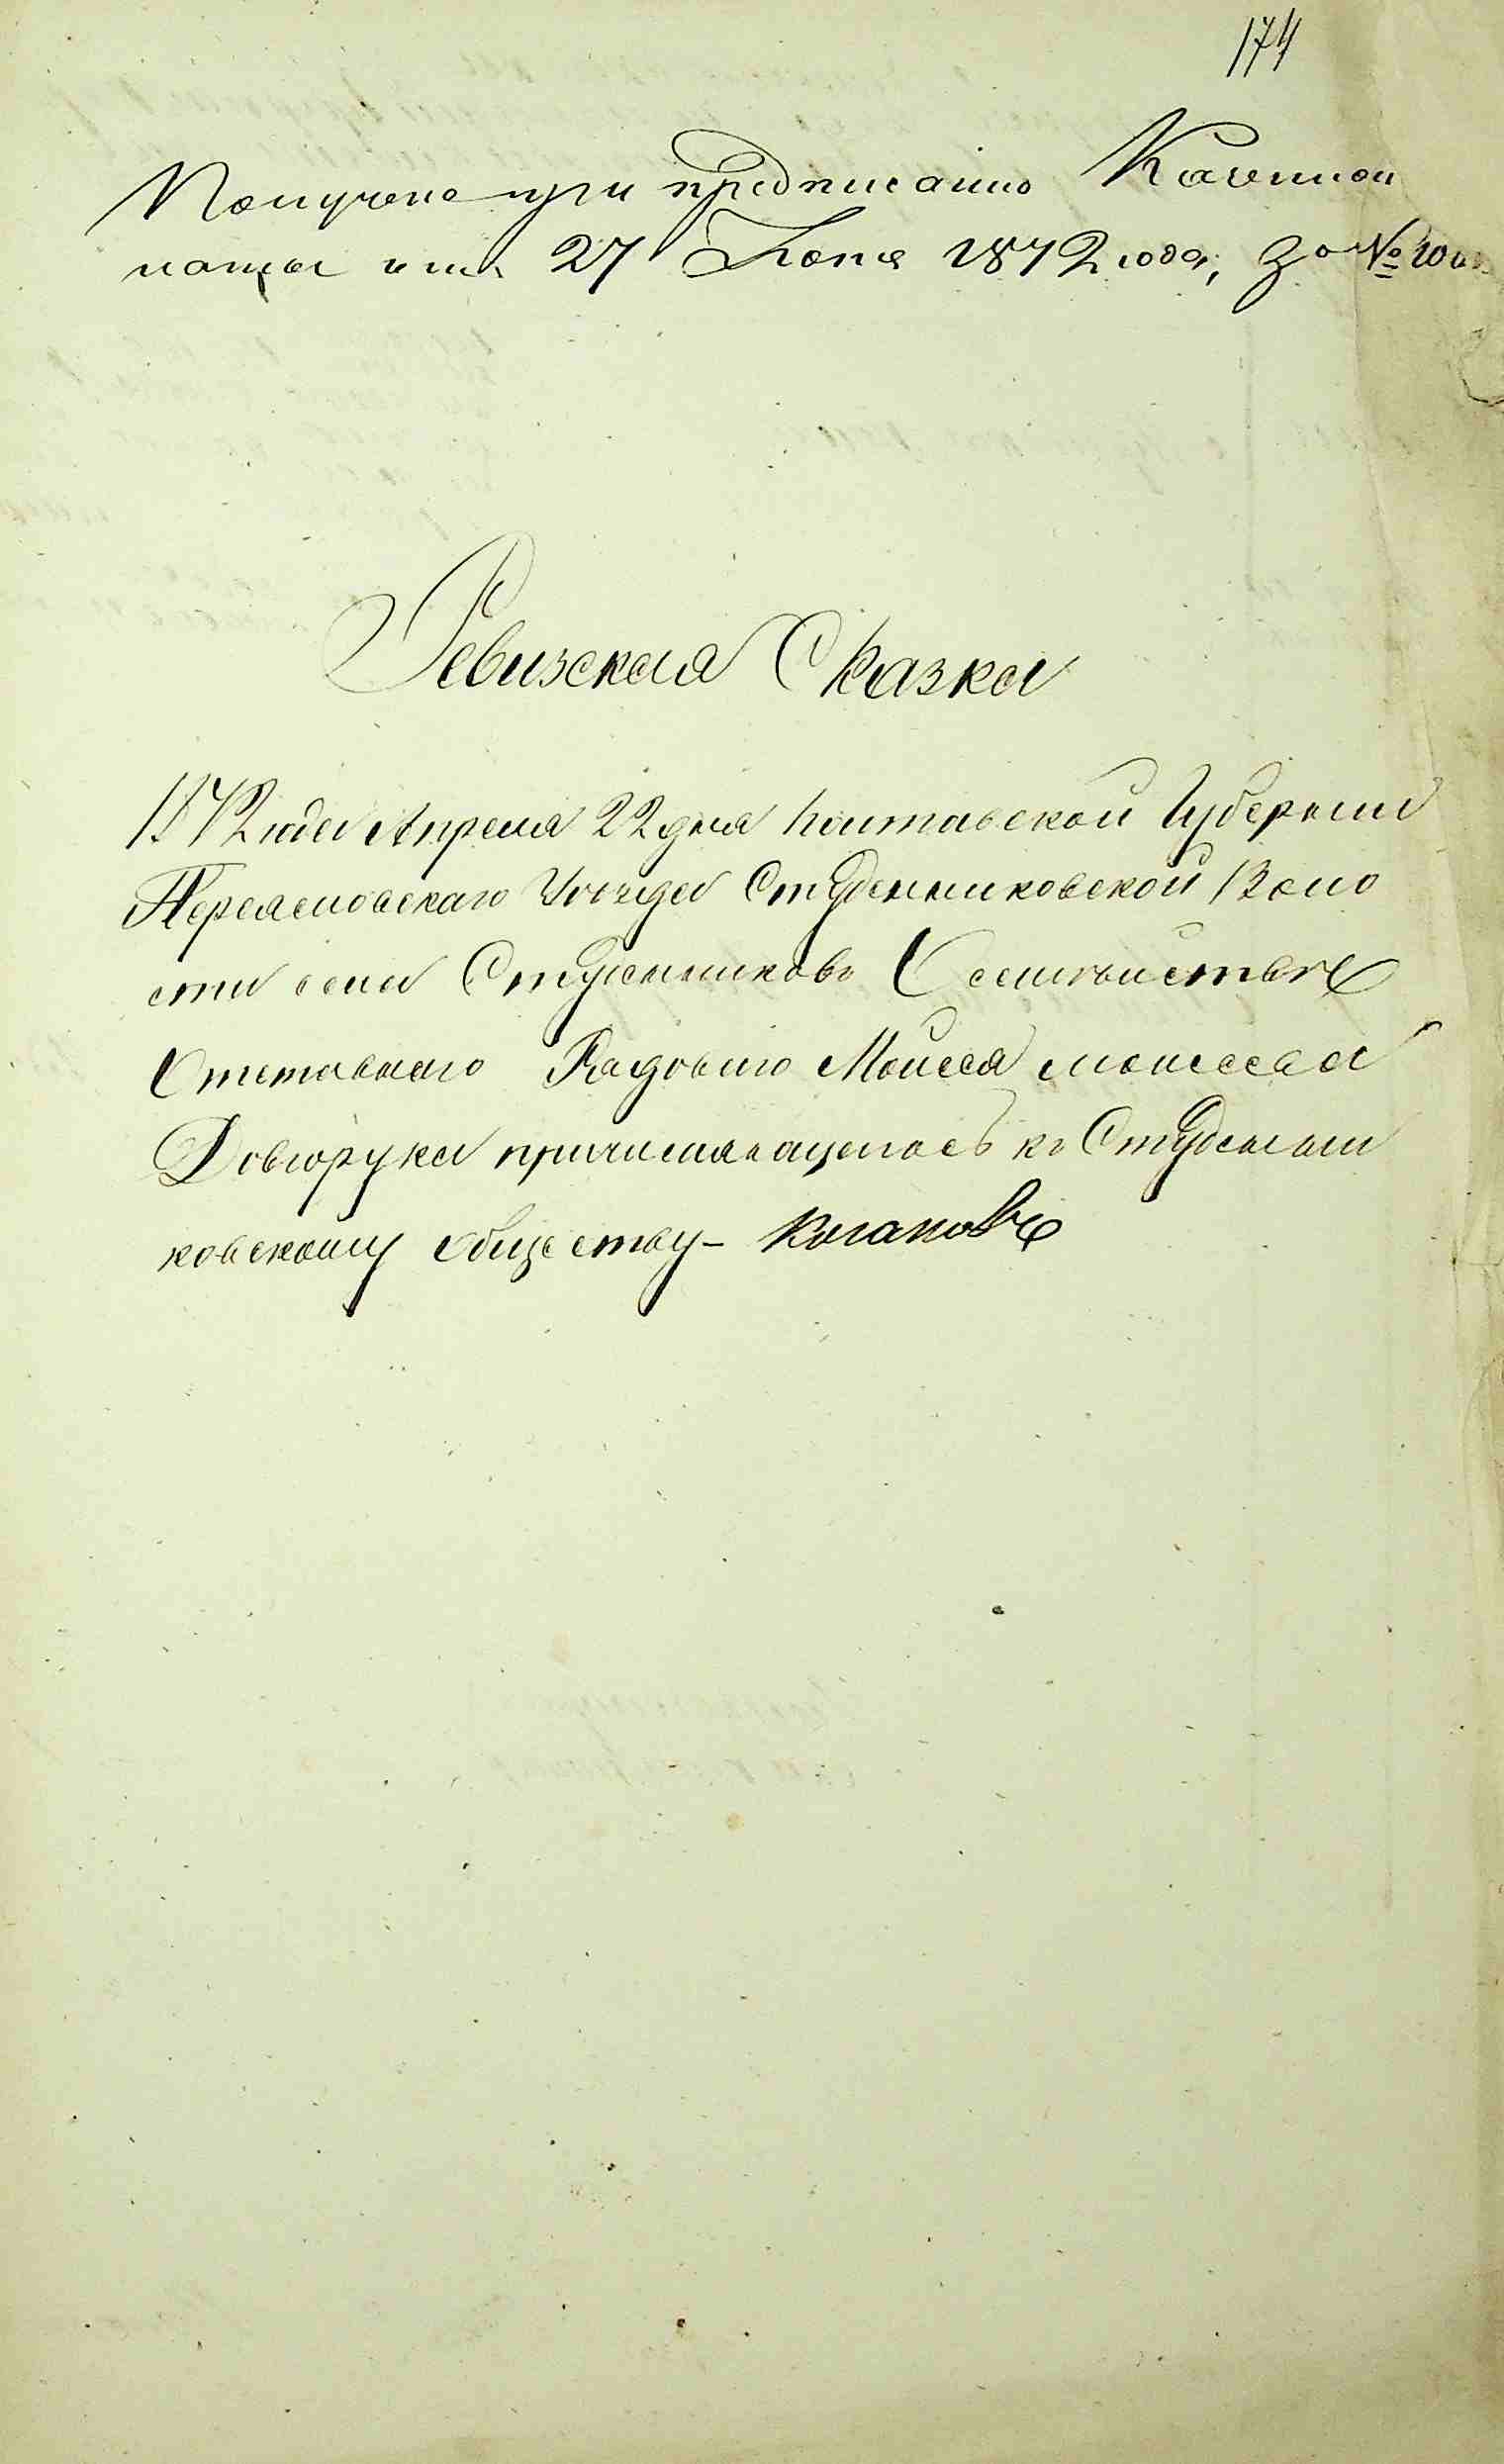 174
Получена при предписанию Казенной
палаты отъ 27 Іюня 1872 года, за №
Ревизская Сказка
1872 года Апреля 22 дня Полтавской Губернии
Переяславскаго Уезда Студениковской Воло
сти села Студениковъ О семействѣ
Отставнаго Рядоваго Моисея Моисеева
Довгорука причисляющегось къ Студени
ковскому обществу – козаковъ